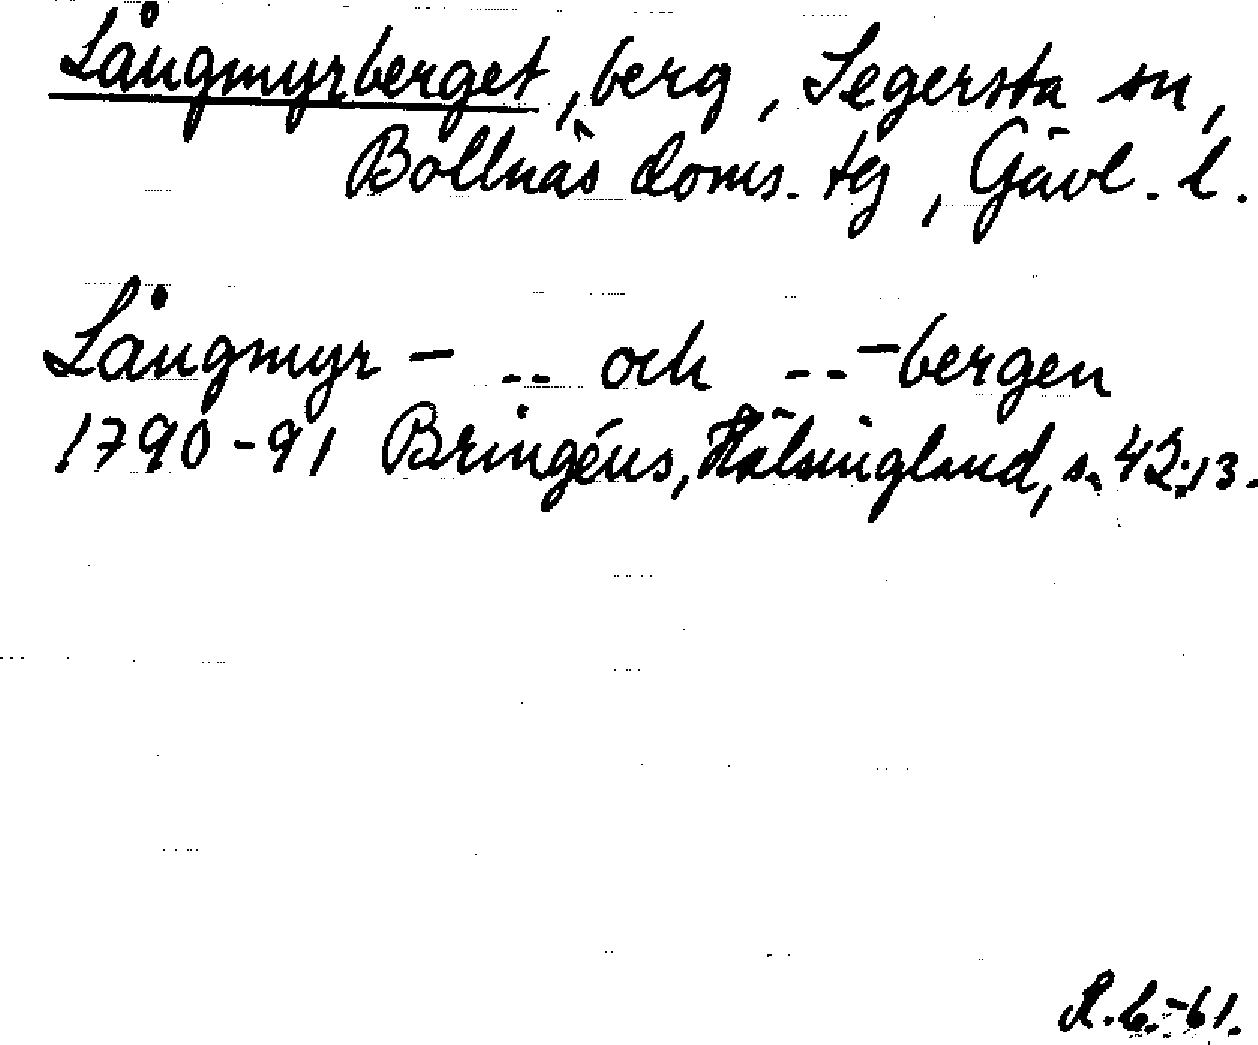 Långmyrberget, berg, Segersta sn,
Bollnäs doms. tg, Gävl. l.
Långmyr- -- och -- -bergen
1790-91 Bringéus, Hälsingland, s. 42, 13.
R.b.-61.